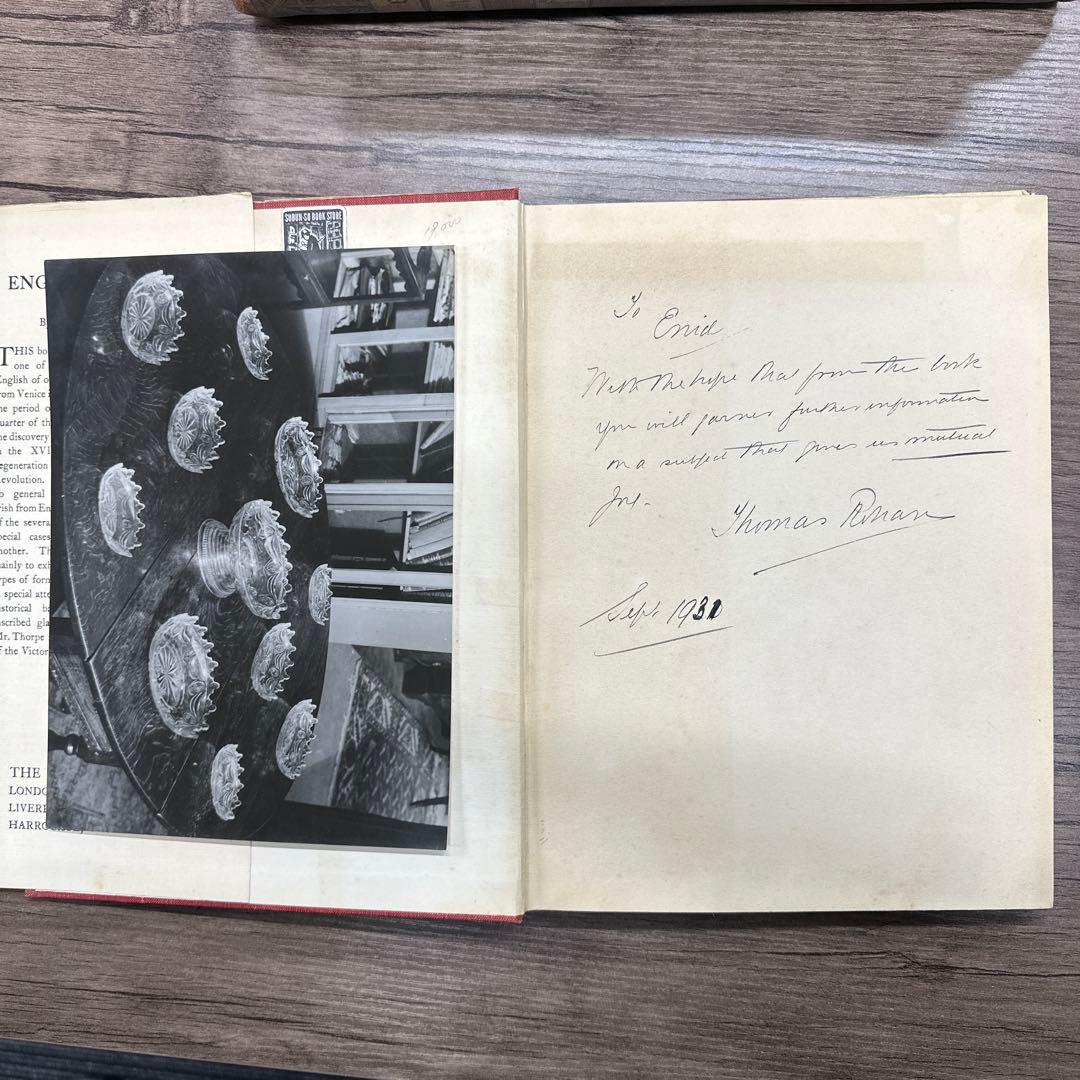 ENG
B
THIS bo
one of
English of o
from Venice i
he period o
uarter of th
he discovery
n the XVI
egeneration
evolution.
o general
rish from En
f the severa
pecial cases
nother. Th
ainly to exh
ypes of form
special atte
istorical ba
nscribed gla
Mr. Thorpe
f the Victor
THE
LONDO
LIVERP
HARRO
SUBUN-SO BOOK STORE
To
Enid
With the hope that from the book
you will garner further information
on a subject that gives us mutual
joy.
Thomas Rohan
Sept. 1931